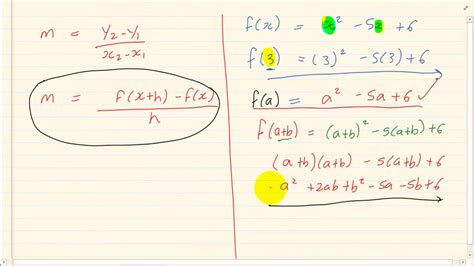 m = y₂ - y₁ / x₂ - x₁
m = f(x+h) - f(x) / h
f(x) = x² - 5x + 6
f(3) = (3)² - 5(3) + 6
f(a) = a² - 5a + 6
f(a+b) = (a+b)² - 5(a+b) + 6
(a+b)(a+b) - 5(a+b) + 6
a² + 2ab + b² - 5a - 5b + 6